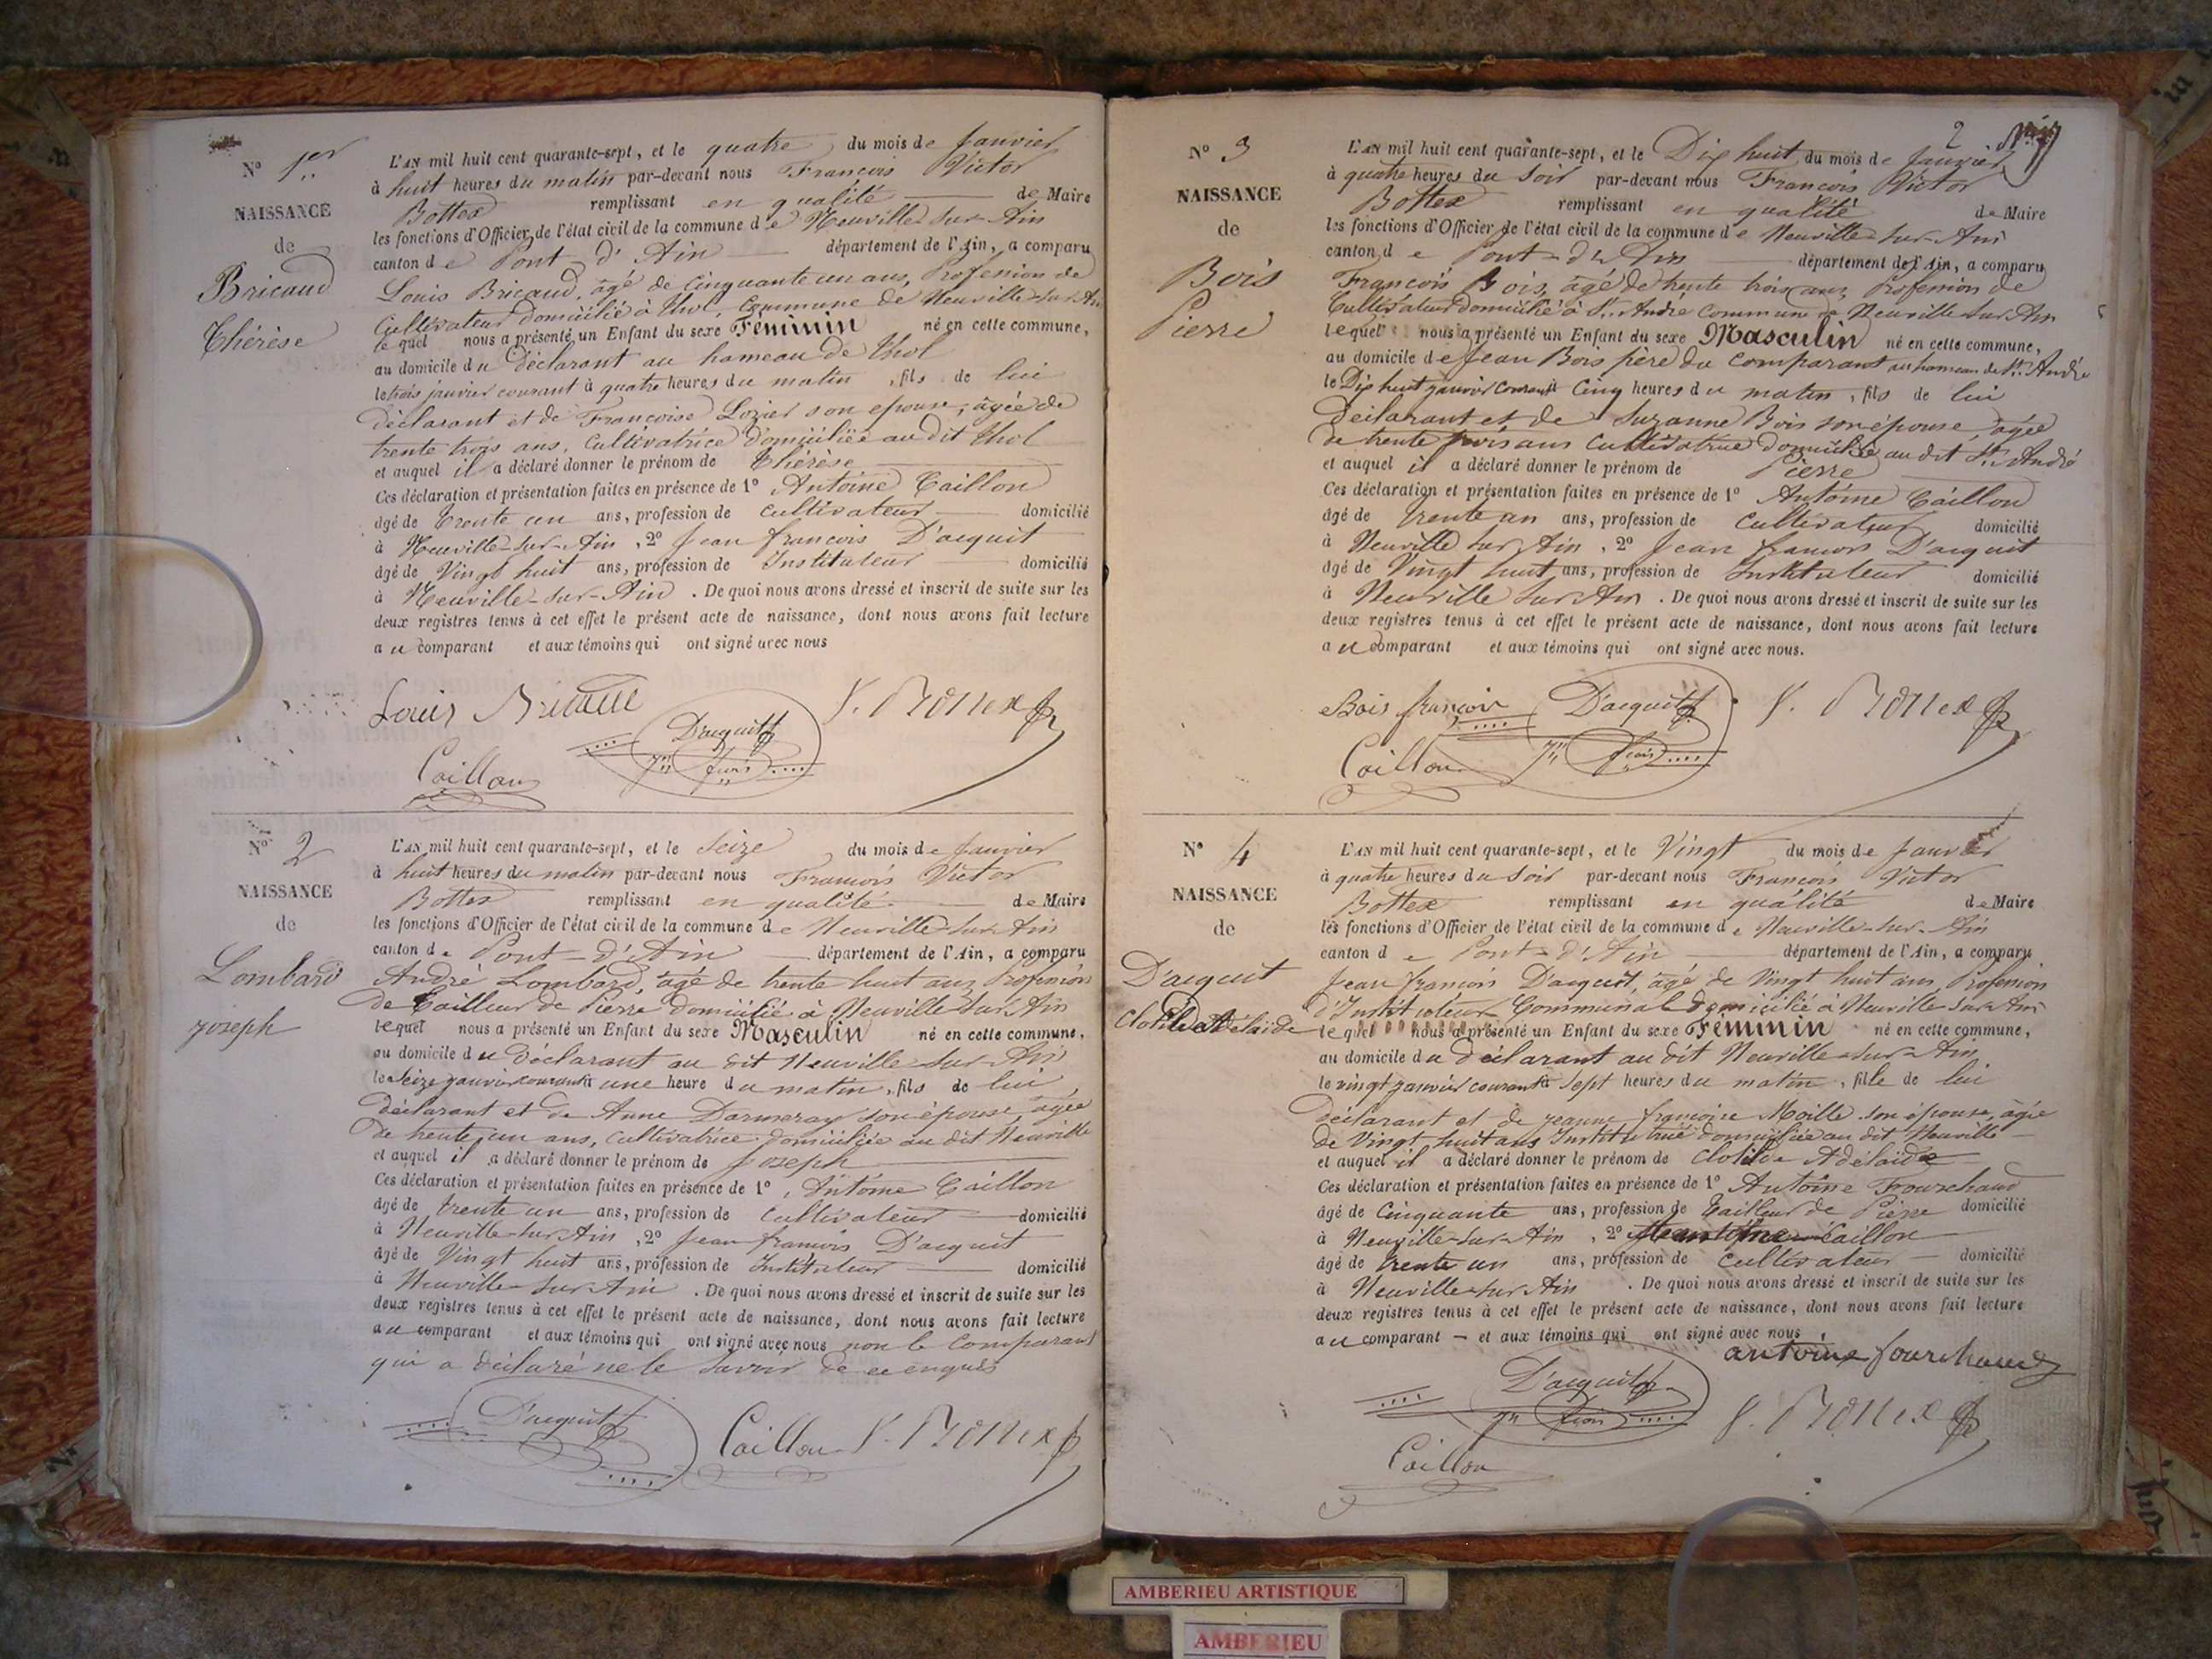 N° 1er
NAISSANCE
de
Bricaud
Thérèse
L'AN mil huit cent quarante-sept, et le quatre du mois de Janvier
à huit heures du matin par-devant nous François Victor
Bottex remplissant en qualité de Maire
les fonctions d'Officier de l'état civil de la commune de Neuville-sur-Ain
canton de Pont-d'Ain département de l'Ain, a comparu
Louis Bricaud, âgé de Cinquante un ans, Profession de
Cultivateur domicilié à Thol, Commune de Neuville-sur-Ain
lequel nous a présenté un Enfant du sexe Féminin né en cette commune,
au domicile du Déclarant au hameau de Thol
le trois janvier courant à quatre heures du matin, fils de lui
déclarant et de Françoise Lozier son épouse, âgée de
trente trois ans, Cultivatrice domiciliée au dit Thol
et auquel il a déclaré donner le prénom de Thérèse
Ces déclaration et présentation faites en présence de 1° Antoine Caillon
âgé de trente un ans, profession de cultivateur domicilié
à Neuville-sur-Ain, 2° Jean françois D'acquit
âgé de Vingt huit ans, profession de Instituteur domicilié
à Neuville-sur-Ain. De quoi nous avons dressé et inscrit de suite sur les
deux registres tenus à cet effet le présent acte de naissance, dont nous avons fait lecture
au comparant et aux témoins qui ont signé avec nous
Louis Bricaud D'acquit V. Bottex
Jn fcois
Caillon
N° 2
NAISSANCE
de
Lombard
joseph
L'AN mil huit cent quarante-sept, et le Seize du mois de Janvier
à huit heures du matin par-devant nous François Victor
Bottex remplissant en qualité de Maire
les fonctions d'Officier de l'état civil de la commune de Neuville-sur-Ain
canton de Pont-d'Ain département de l'Ain, a comparu
André Lombard, âgé de trente huit ans Profession
de Tailleur de Pierre domicilié à Neuville sur Ain
lequel nous a présenté un Enfant du sexe Masculin né en cette commune,
au domicile du déclarant au dit Neuville-sur-Ain
le Seize janvier courant à une heure du matin, fils de lui
déclarant et de Anne Darmeray son épouse, âgée
de trente un ans, cultivatrice domiciliée au dit Neuville
et auquel il a déclaré donner le prénom de Joseph
Ces déclaration et présentation faites en présence de 1° Antoine Caillon
âgé de trente un ans, profession de cultivateur domicilié
à Neuville-sur-Ain, 2° Jean françois D'acquit
âgé de Vingt huit ans, profession de Instituteur domicilié
à Neuville-sur-Ain. De quoi nous avons dressé et inscrit de suite sur les
deux registres tenus à cet effet le présent acte de naissance, dont nous avons fait lecture
au comparant et aux témoins qui ont signé avec nous non le Comparant
qui a déclaré ne le Savoir de ce enquis
D'acquit Caillon V. Bottex
2
N° 3
NAISSANCE
de
Bois
Pierre
L'AN mil huit cent quarante-sept, et le Dix huit du mois de Janvier
à quatre heures du Soir par-devant nous François Victor
Bottex remplissant en qualité de Maire
les fonctions d'Officier de l'état civil de la commune de Neuville-sur-Ain
canton de Pont-d'Ain département de l'Ain, a comparu
François Bois, âgé de trente trois ans, Profession de
Cultivateur domicilié à St. André Commune de Neuville sur Ain
lequel nous a présenté un Enfant du sexe Masculin né en cette commune,
au domicile de Jean Bois père du Comparant au hameau de St. André
le Dix huit janvier courant à Cinq heures du matin, fils de lui
déclarant et de Suzanne Bois son épouse, âgée
de trente trois ans Cultivatrice domiciliée au dit St. André
et auquel il a déclaré donner le prénom de Pierre
Ces déclaration et présentation faites en présence de 1° Antoine Caillon
âgé de trente un ans, profession de cultivateur domicilié
à Neuville sur Ain, 2° Jean françois D'acquit
âgé de Vingt huit ans, profession de Instituteur domicilié
à Neuville sur Ain. De quoi nous avons dressé et inscrit de suite sur les
deux registres tenus à cet effet le présent acte de naissance, dont nous avons fait lecture
au comparant et aux témoins qui ont signé avec nous.
Bois françois D'acquit V. Bottex
Caillon Jn fcois
N° 4
NAISSANCE
de
D'acquit
Clotilde Adelaïde
L'AN mil huit cent quarante-sept, et le Vingt du mois de Janvier
à quatre heures du Soir par-devant nous François Victor
Bottex remplissant en qualité de Maire
les fonctions d'Officier de l'état civil de la commune de Neuville-sur-Ain
canton de Pont-d'Ain département de l'Ain, a comparu
Jean françois D'acquit, âgé de Vingt huit ans, Profession
d'Instituteur Communal domicilié à Neuville sur Ain
lequel nous a présenté un Enfant du sexe Féminin né en cette commune,
au domicile du déclarant au dit Neuville-sur-Ain
le vingt janvier courant à Sept heures du matin, fille de lui
déclarant et de jeanne françoise Moille son épouse, âgée
de Vingt huit ans Institutrice domiciliée au dit Neuville
et auquel il a déclaré donner le prénom de Clotilde Adélaïde
Ces déclaration et présentation faites en présence de 1° Antoine Fourchaud
âgé de Cinquante ans, profession de Tailleur de Pierre domicilié
à Neuville-sur-Ain, 2° Antoine Caillon
âgé de trente un ans, profession de Cultivateur domicilié
à Neuville-sur-Ain. De quoi nous avons dressé et inscrit de suite sur les
deux registres tenus à cet effet le présent acte de naissance, dont nous avons fait lecture
au comparant et aux témoins qui ont signé avec nous.
antoine fourchaud
D'acquit
Jn fcois V. Bottex
Caillon
AMBERIEU ARTISTIQUE
AMBERIEU